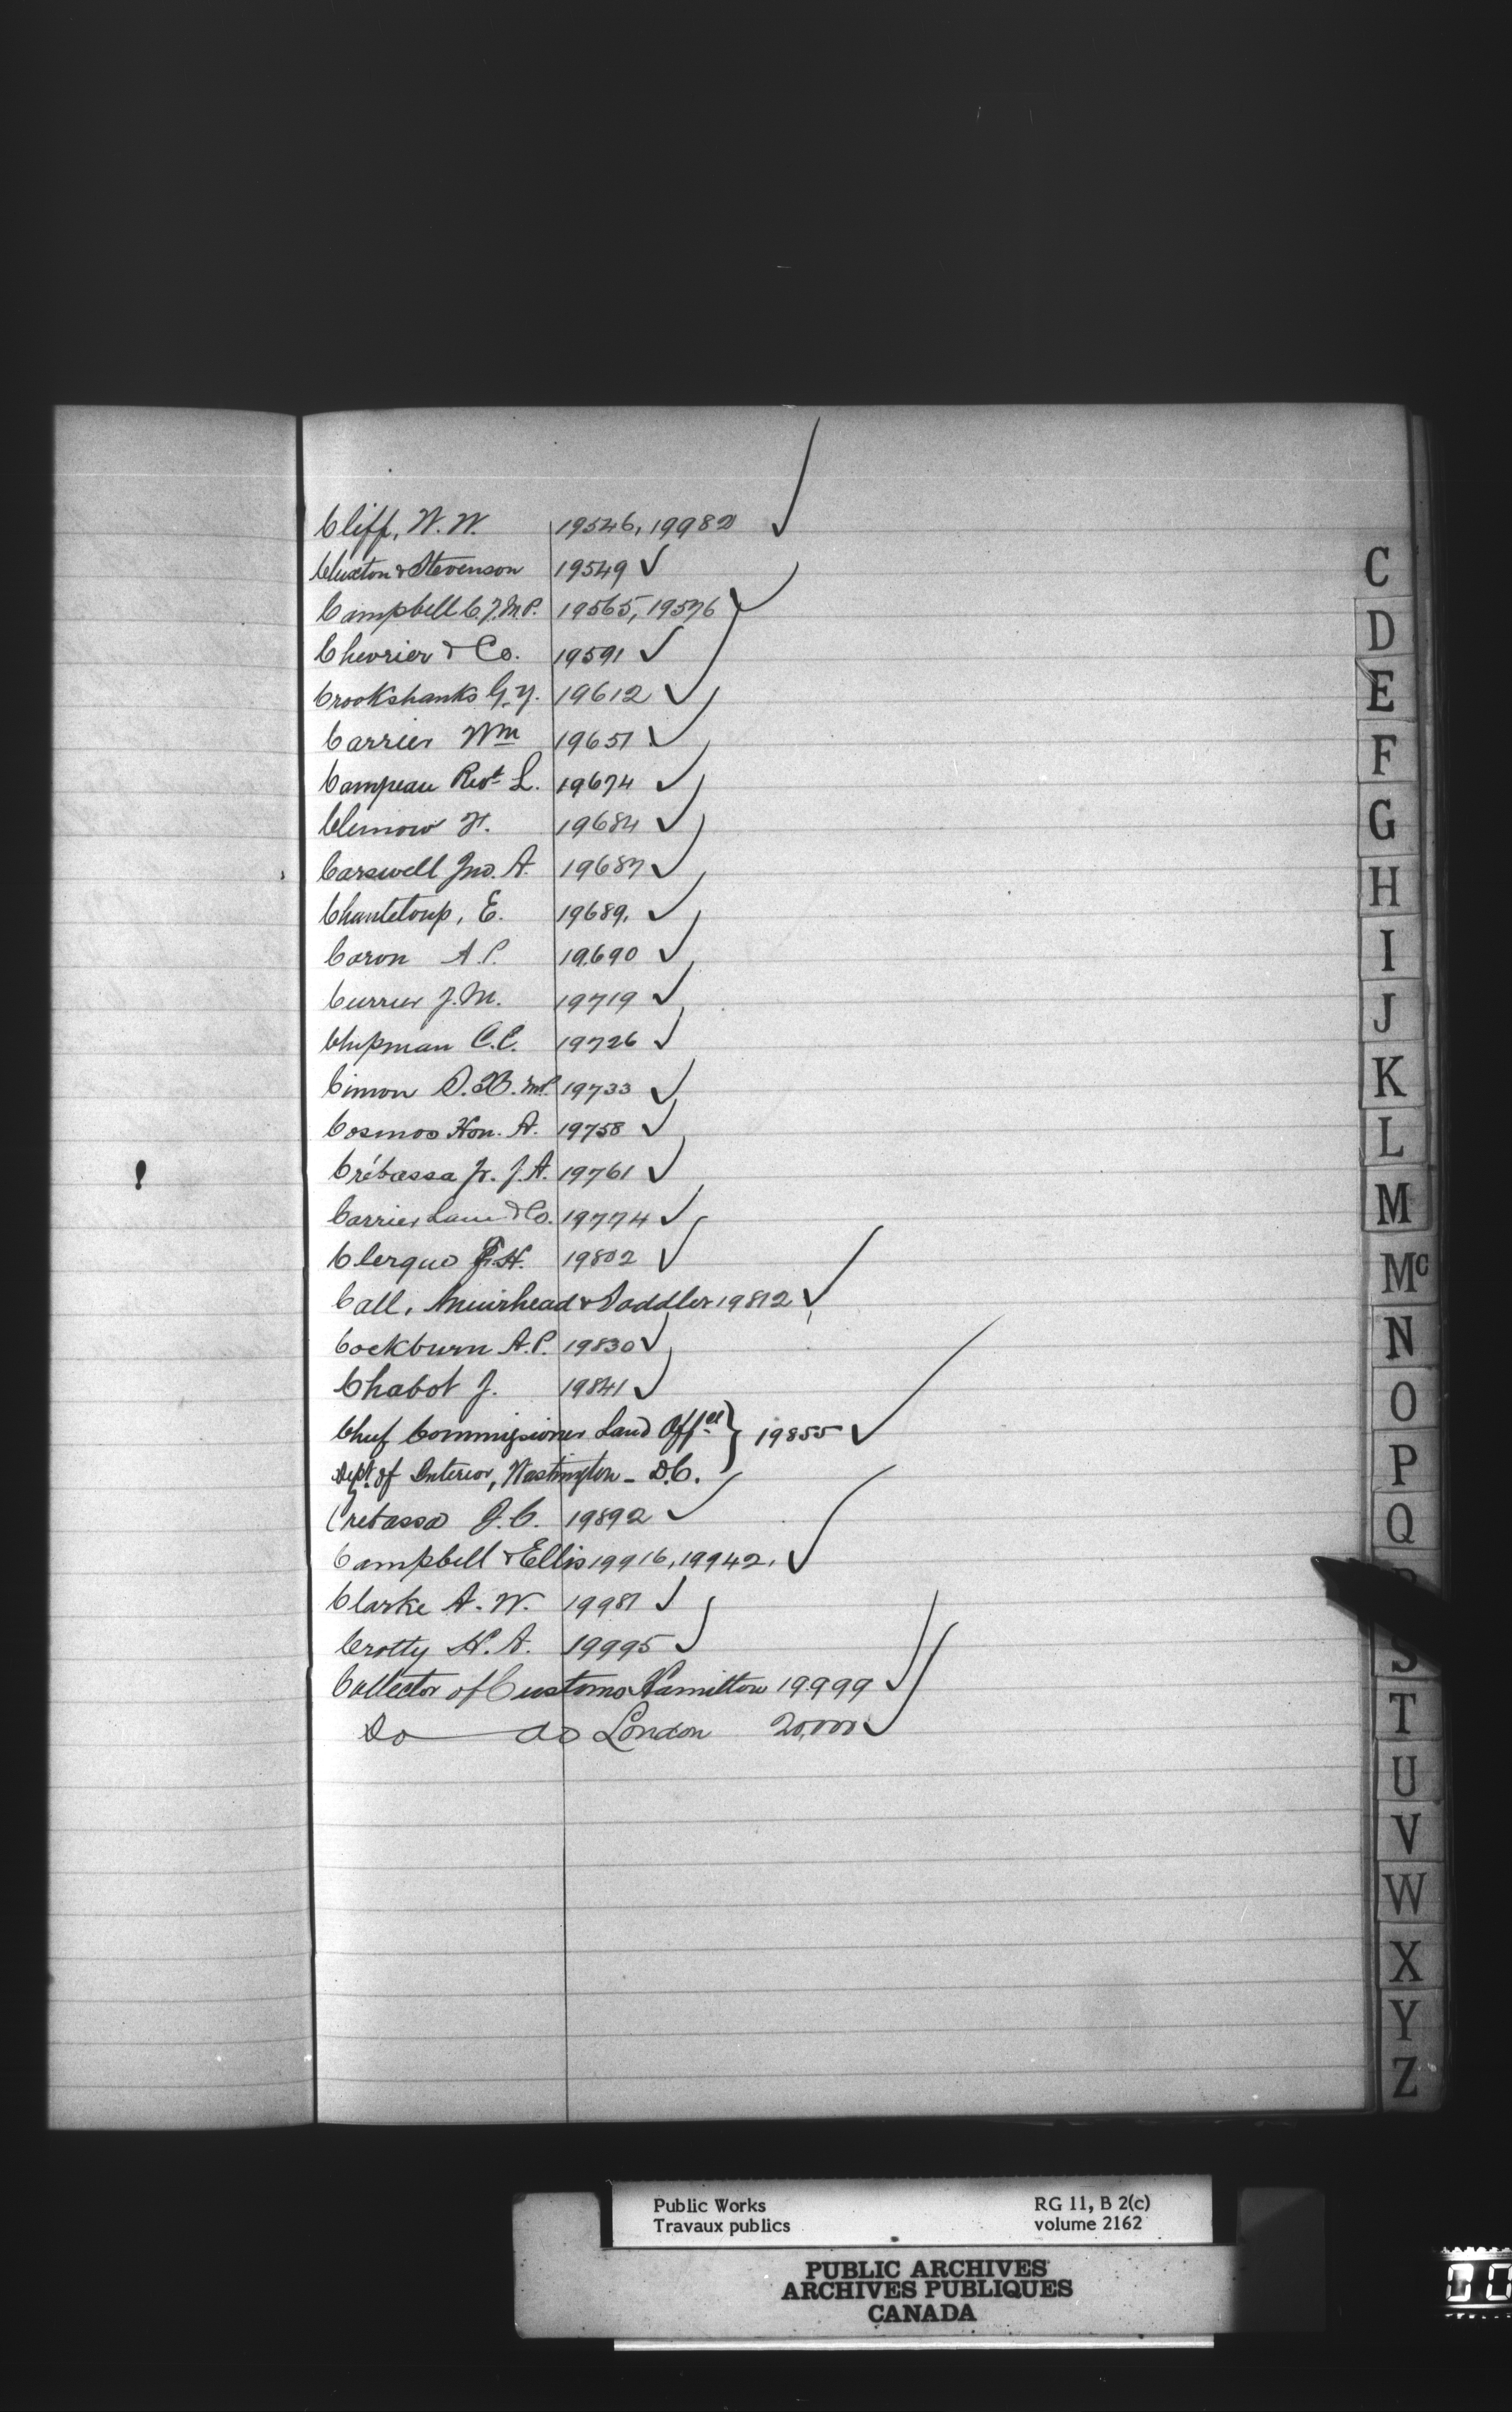 Cliff, W. W. 19546, 19982
Cluxton & Stevenson 19549 ✓
Campbell C. J. M.P. 19565, 19576 ✓
Chevrier & Co. 19591 ✓
Crookshanks G. Y. 19612 ✓
Carrier Wm 19651 ✓
Campeau Revd L. 19674 ✓
Clemow F. 19684 ✓
Carswell Jno. A. 19687 ✓
Chanteloup, E. 19689, ✓
Caron A. P. 19690 ✓
Currier J. M. 19719 ✓
Chipman C. C. 19726 ✓
Cimon S. X. B. M.P. 19733 ✓
Cosmos Hon. A. 19758 ✓
Crébassa Jr. J. A. 19761 ✓
Carrier Laine & Co. 19774 ✓
Clergue F. H. 19802 ✓
Call, Muirhead & Saddler 19812 ✓
Cockburn A. P. 19830 ✓
Chabot J. 19841 ✓
Chief Commissioner Land Office } 19855 ✓
Dept. of Interior, Washington - D.C.
Crebassa J. C. 19892 ✓
Campbell & Ellis 19916, 19942, ✓
Clarke A. W. 19981 ✓
Crotty H. A. 19995 ✓
Collector of Customs Hamilton 19999 ✓
Do — do London 20,000 ✓
C
D
E
F
G
H
I
J
K
L
M
Mc
N
O
P
Q
S
T
U
V
W
X
Y
Z
Public Works RG 11, B 2(c)
Travaux publics volume 2162
PUBLIC ARCHIVES
ARCHIVES PUBLIQUES
CANADA